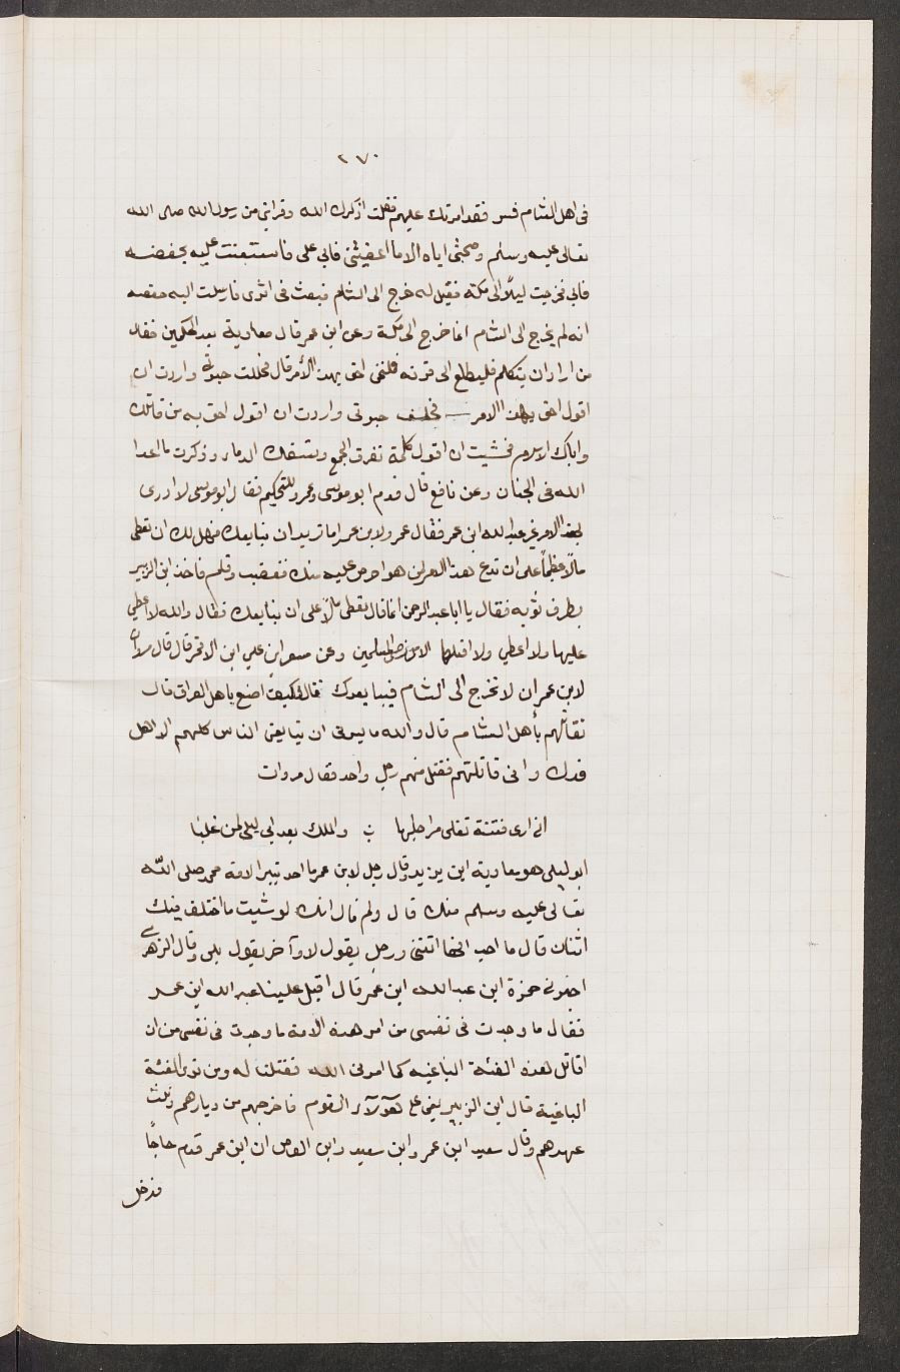 ٢٧٠
فى اهل الشام فسر فقد امرتك عليهم فقلت اذكرك الله وقرابتى من رسول الله صلى الله
تعالى عليه وسلم وصحبتى اياه الا ما اعفيتنى فابى على فاستعنت عليه بحفصه
فابى فخرجت ليلاً الى مكة فقيل له خرج الى الشام فبعث فى اثرى فارسلت اليه حفصه
انه لم يخرج الى الشام انما خرج الى مكة وعن ابن عمر قال معاوية بعد الحكمين فقال
من اراد ان يتكلم فليطلع الى قرنه فلنحن احق بهذا الأمر قال فحللت حبوتى واردت ان
اقول احق بهذا الامر فحللت حبوتى واردت ان اقول احق به من قاتلك
واباك الاسلام فخشيت ان اقول كلمة تفرق الجمع وتسفك الدماء وذكرت ما اعدا
الله فى الجنان وعن نافع قال قدم ابو موسى وعمرو للتحكيم فقال ابو موسى لا ارى
لهذا الامر غير عبد الله ابن عمر فقال عمرو لابن عمر اما تريد ان نبايعك فهل لك ان تعطى
مالاً عظيماً على ان تدع هذا الامر لمن هو احرص عليه منك فغضب وقام فاخذ ابن الزبير
بطرف ثوبه فقال يا ابا عبد الرحمن انما قال تعطى مالاً على ان نبايعك فقال والله لا اعطي
عليها ولا اعطي ولا اقبلها الا من رضى المسلمين وعن ابن قال قال مروان
لابن عمر ان لا تخرج الى الشام فيبايعوك فقال فكيف اصنع باهل العراق قال
تقاتلهم بأهل الشام قال والله ما يسرنى ان يبايعنى الناس كلهم الا اهل
فدك وانى قاتلتهم فقتل منهم رجل واحد فقال مروان
انى ارى فتنة تغلى مراجلها ۞ والملك بعد ابي ليلى لمن غلبا
ابو ليلى هو معاوية ابن يزيد وقال رجل لابن عمر ما احد الامة محمد صلى الله
تعالى عليه وسلم منك قال ولم قال انك لو شئت ما اختلف فيك
اثنان قال ما احب انها اتتنى ورجل يقول لا وآخر يقول بلى وقال الزهرى
اخبرنى حمزة ابن عبد الله ابن عمر قال اقبل علينا عبد الله ابن عمر
فقال ما وجدت فى نفسى من امر هذه الامة ما وجدت فى نفسى من ان
اقاتل هذه الفئة الباغيه كما امرنى الله فقلنا له ومن ترى الفئة
الباغية قال ابن الزبير بغى على هؤلآء القوم فاخرجهم من ديارهم ونكث
عهدهم وقال سعيد ابن عمرو ابن سعيد ابن العاص ان ابن عمر قدم حاجاً
فدخل